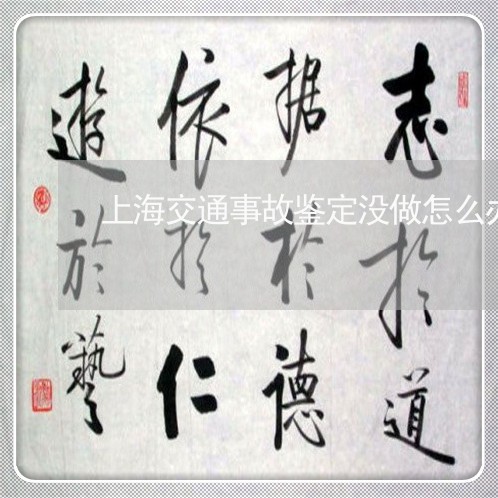 志於道
据於德
依於仁
遊於藝
上海交通事故鉴定没做怎么